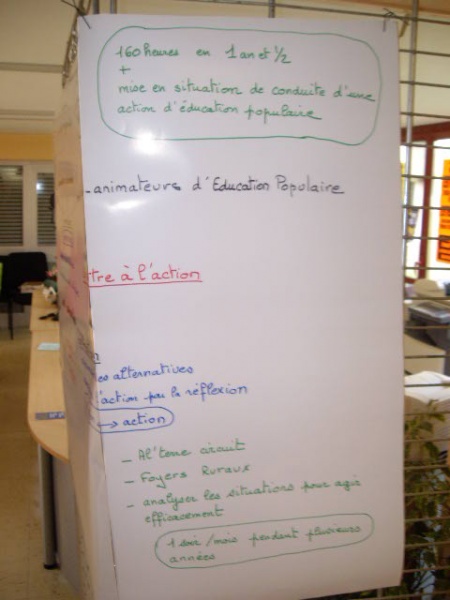 160 heures en 1 an et 1/2
+
mise en situation de conduite d'une
action d'éducation populaire
animateurs d'Education Populaire
tre à l'action
es alternatives
l'action par la réflexion
→ action
- Al'terre circuit
- Foyers Ruraux
- analyser les situations pour agir
efficacement
1 soir / mois pendant plusieurs
années